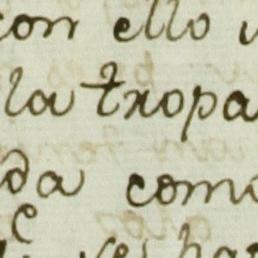 con ello
la tropa
da como